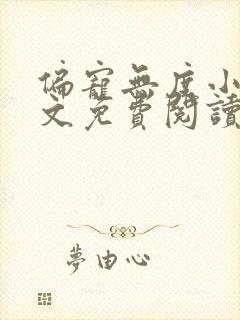 偏寵無度小
文免費閱讀
夢由心